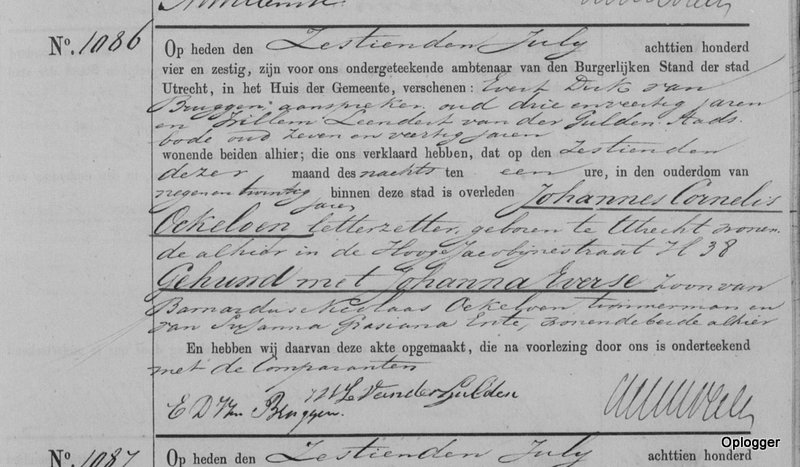 No. 1086
Op heden den Zestienden July achttien honderd
vier en zestig, zijn voor ons ondergeteekende ambtenaar van den Burgerlijken Stand der stad
Utrecht, in het Huis der Gemeente, verschenen: Evert Dirk van
Bruggen, aanspreker, oud drie en veertig jaren
en Willem Leendert van der Gulden, Stads
bode oud zeven en veertig jaren
wonende beiden alhier; die ons verklaard hebben, dat op den Zestienden
dezer maand des nachts ten een ure, in den ouderdom van
negen en twintig jaren binnen deze stad is overleden Johannes Cornelis
Ockeloen letterzetter, geboren te Utrecht wonen-
de alhier in de Hooge Jacobijnestraat H 38
Gehuwd met Johanna Everse zoon van
Barnardus Nicolaas Ockeloen, timmerman en
van Susanna Ente, wonende beide alhier
En hebben wij daarvan deze akte opgemaakt, die na voorlezing door ons is onderteekend
met de Comparanten
E D Van Bruggen. W L Van der Gulden
Oplogger
No. 1087
Op heden den Zestienden July achttien honderd